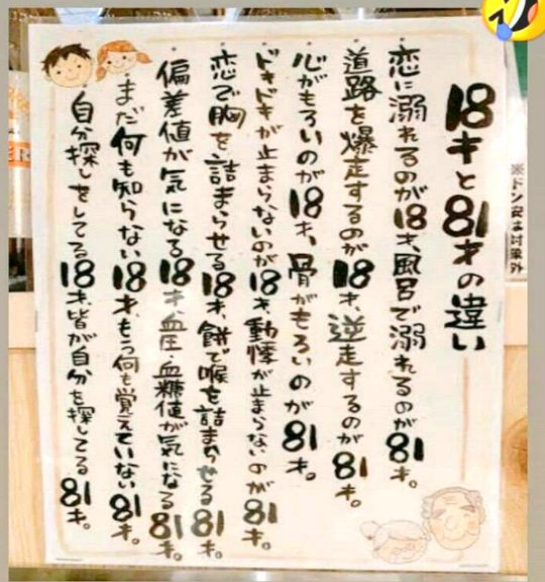 18才と81才の違い
・恋に溺れるのが18才、風呂で溺れるのが81才。
・道路を爆走するのが18才、逆走するのが81才。
・心がもろいのが18才、骨がもろいのが81才。
・ドキドキが止まらないのが18才、動悸が止まらないのが81才。
・恋で胸を詰まらせる18才、餅で喉を詰まらせる81才。
・偏差値が気になる18才、血圧・血糖値が気になる81才。
・まだ何も知らない18才、もう何も覚えていない81才。
・自分探しをしてる18才、皆が自分を探してる81才。